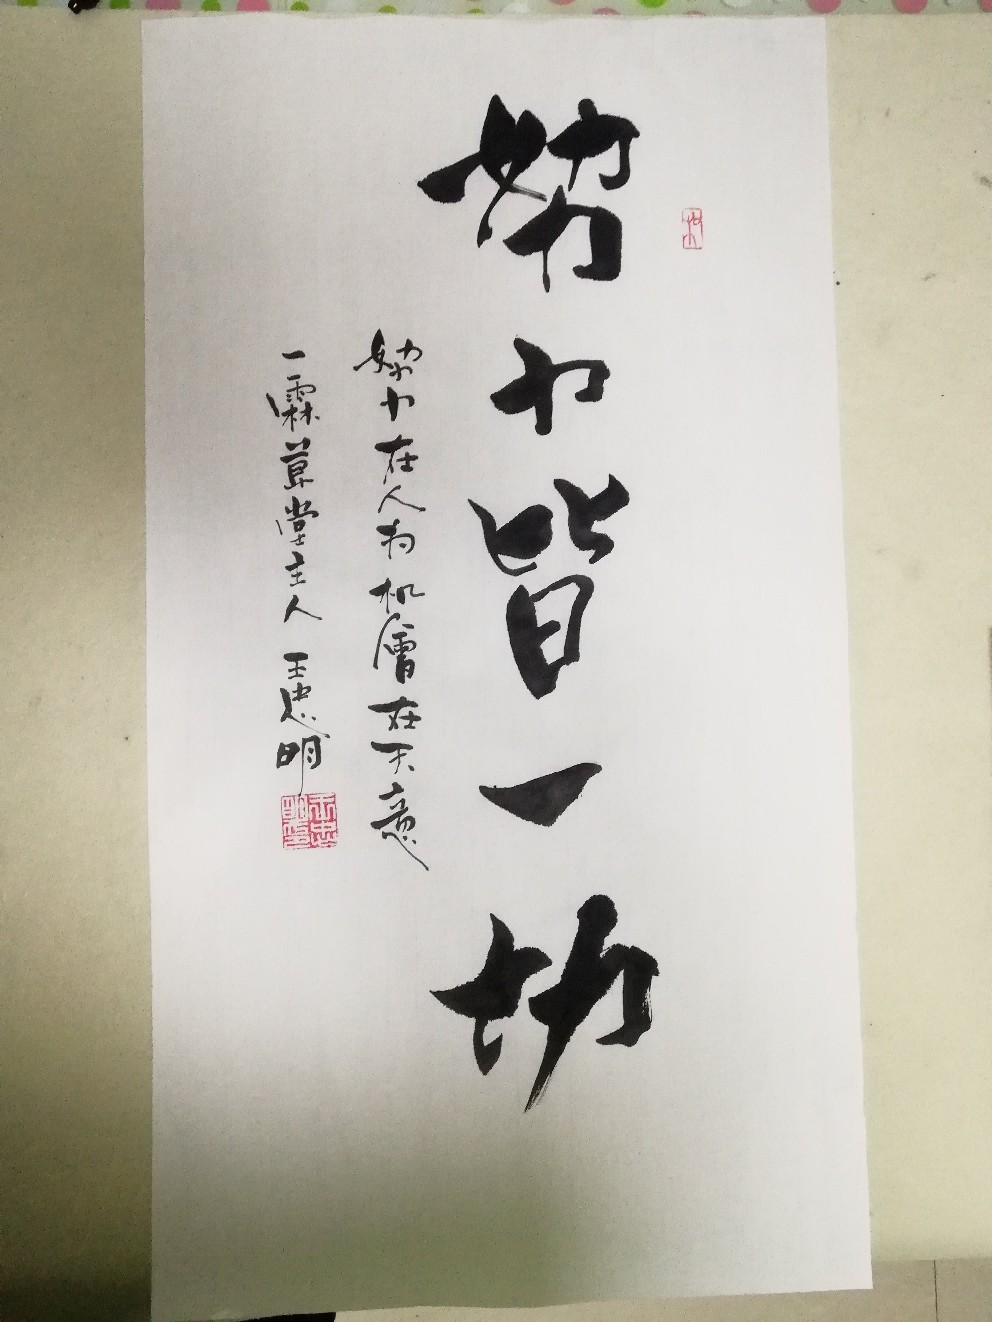 努力皆一切
努力在人为机会在天意
一霖草堂主人王忠明
王忠明印